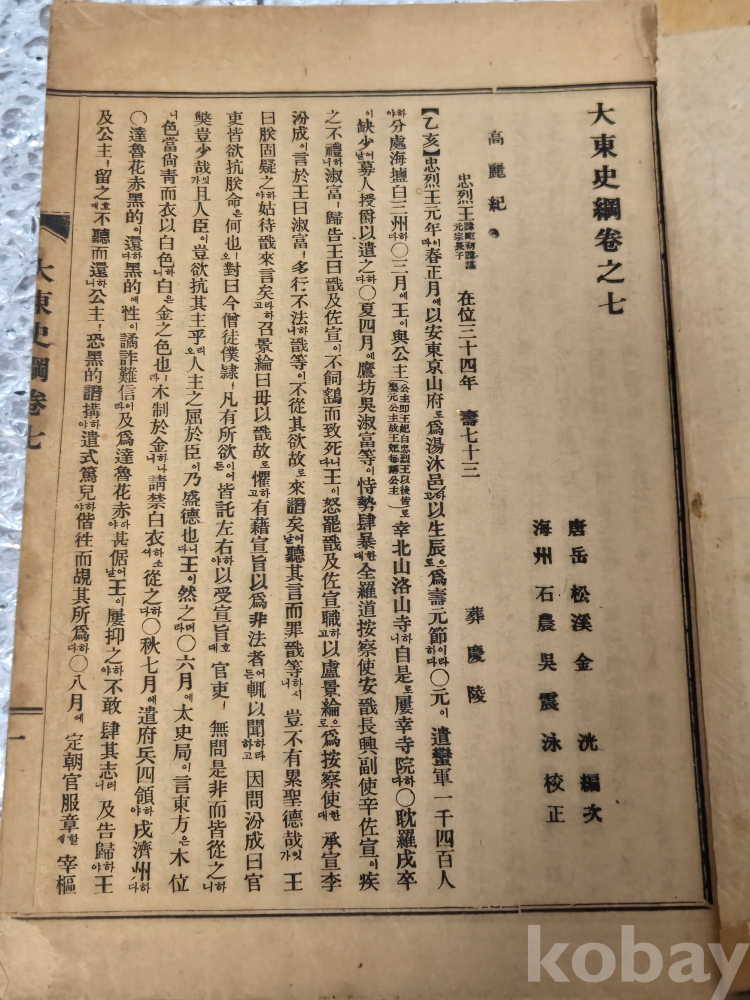 大東史綱卷之七
唐岳 松溪 金 洸 編次
海州 石農 吳震泳 校正
高麗紀
忠烈王 在位三十四年 壽七十三 葬慶陵
【乙亥】忠烈王元年이라春正月에以安東京山府로爲湯沐邑하고以生辰으로爲壽元節이라하다○元이遣蠻軍一千四百人
하야分處海塩白三州하다○三月에王이與公主로幸北山洛山寺하니自是로屢幸寺院하다○耽羅戍卒
이缺少어날募人授爵以遣之하다○夏四月에鷹坊吳淑富等이恃勢肆暴한대全羅道按察使安戩長興副使辛佐宣이疾
之不禮하니淑富ㅣ歸告王曰戩及佐宣이不飼鷂而致死라하니王이怒罷戩及佐宣職하고以盧景綸으로爲按察使한대承宣李
汾成이言於王曰淑富ㅣ多行不法하니戩等이不從其欲故로來譖矣어날聽其言而罪戩等하시니豈不有累聖德哉잇가王
曰朕固疑之하야姑待戩來言矣라하고召景綸曰毋以戩故로懼하고有藉宣旨以爲非法者어든輒以聞하라하고因問汾成曰官
吏皆欲抗朕命은何也오對曰今僧徒僕隷ㅣ凡有所欲이어든皆託左右하야以受宣旨호대官吏ㅣ無問是非而皆從之하니
獘豈少哉잇가且人臣이豈欲抗其主乎리오人主之屈於臣이乃盛德也니이다王이然之러라○六月에太史局이言東方은木位
니色當尙靑而衣以白色하니白은金之色也라木制於金하니請禁白衣하소서從之하다○秋七月에遣府兵四領하야戍濟州하다
○達魯花赤黑的이還하다黑的에性이譎詐難信이라及爲達魯花赤하야甚倨어날王이屢抑之하야不敢肆其志러니及告歸하야王
及公主ㅣ留之호대不聽而還하니公主ㅣ恐黑的譖搆하야遣式篤兒하야偕徃而覘其所爲하다○八月에定朝官服章할새宰樞
大東史綱卷七
一
kobay